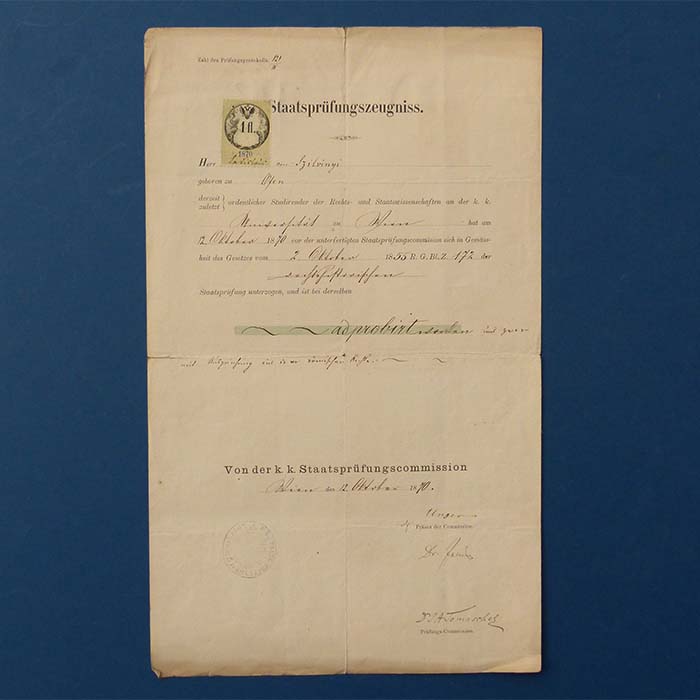 Zahl des Prüfungsprotokolls: 121
Staatsprüfungszeugniss.
1 fl.
1870
Herr von Szilvinyi
geboren zu Ofen
derzeit
zuletzt
ordentlicher Studirender der Rechts- und Staatswissenschaften an der k. k.
Universität zu Wien hat am
12. Oktober 1870 vor der unterfertigten Staatsprüfungscommission sich in Gemäss-
heit des Gesetzes vom 2. Oktober 1855 R. G. Bl. Z. 172 der
rechtshistorischen
Staatsprüfung unterzogen, und ist bei derselben
adprobirt worden und zwar
mit Auszeichnung aus dem römischen Rechte.
Von der k. k. Staatsprüfungscommission
Wien am 12. Oktober 1870.
Unger
Präses der Commission.
Dr.
Tomaschek
Prüfungs-Commissär.